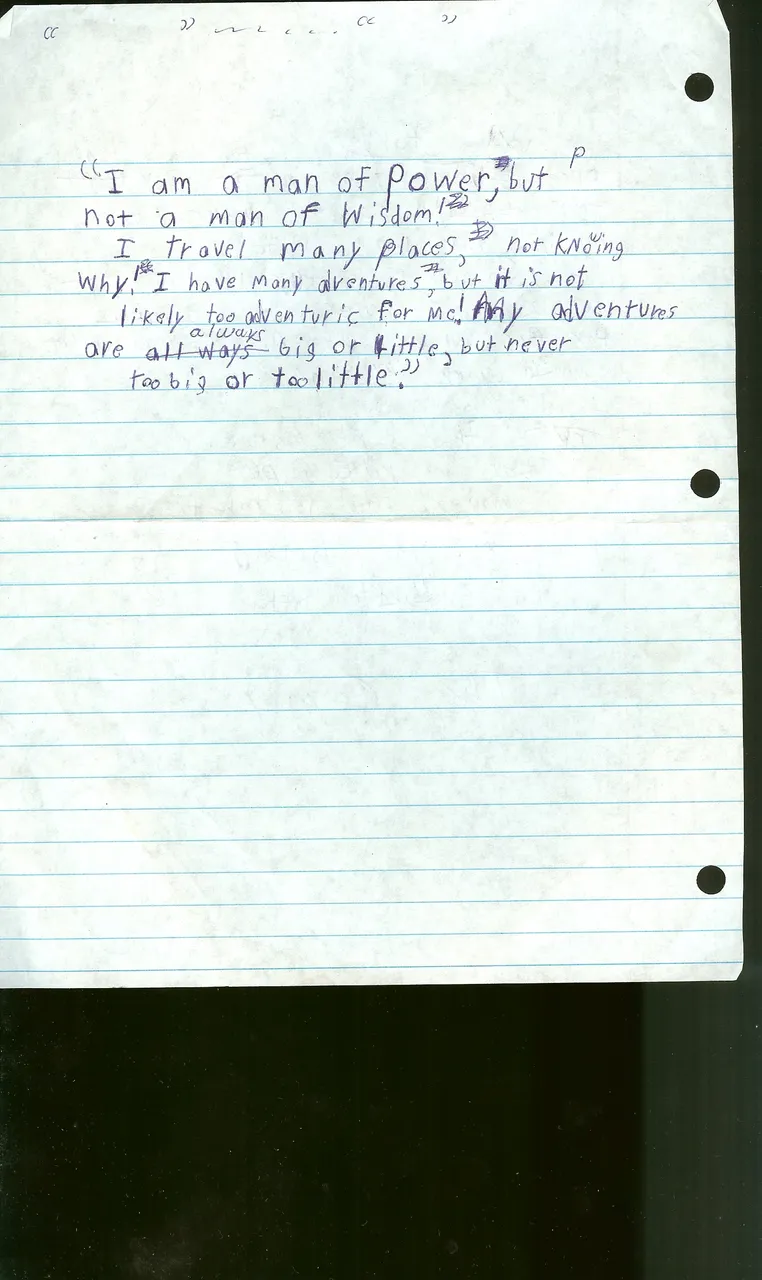 “ ” ~ ~ . . . . “ ”
p
“I am a man of power, but
not a man of wisdom!
I travel many places, not knowing
why! I have many dventures, but it is not
likely too adventuric for me! My adventures
always
are all ways big or little, but never
too big or too little.”